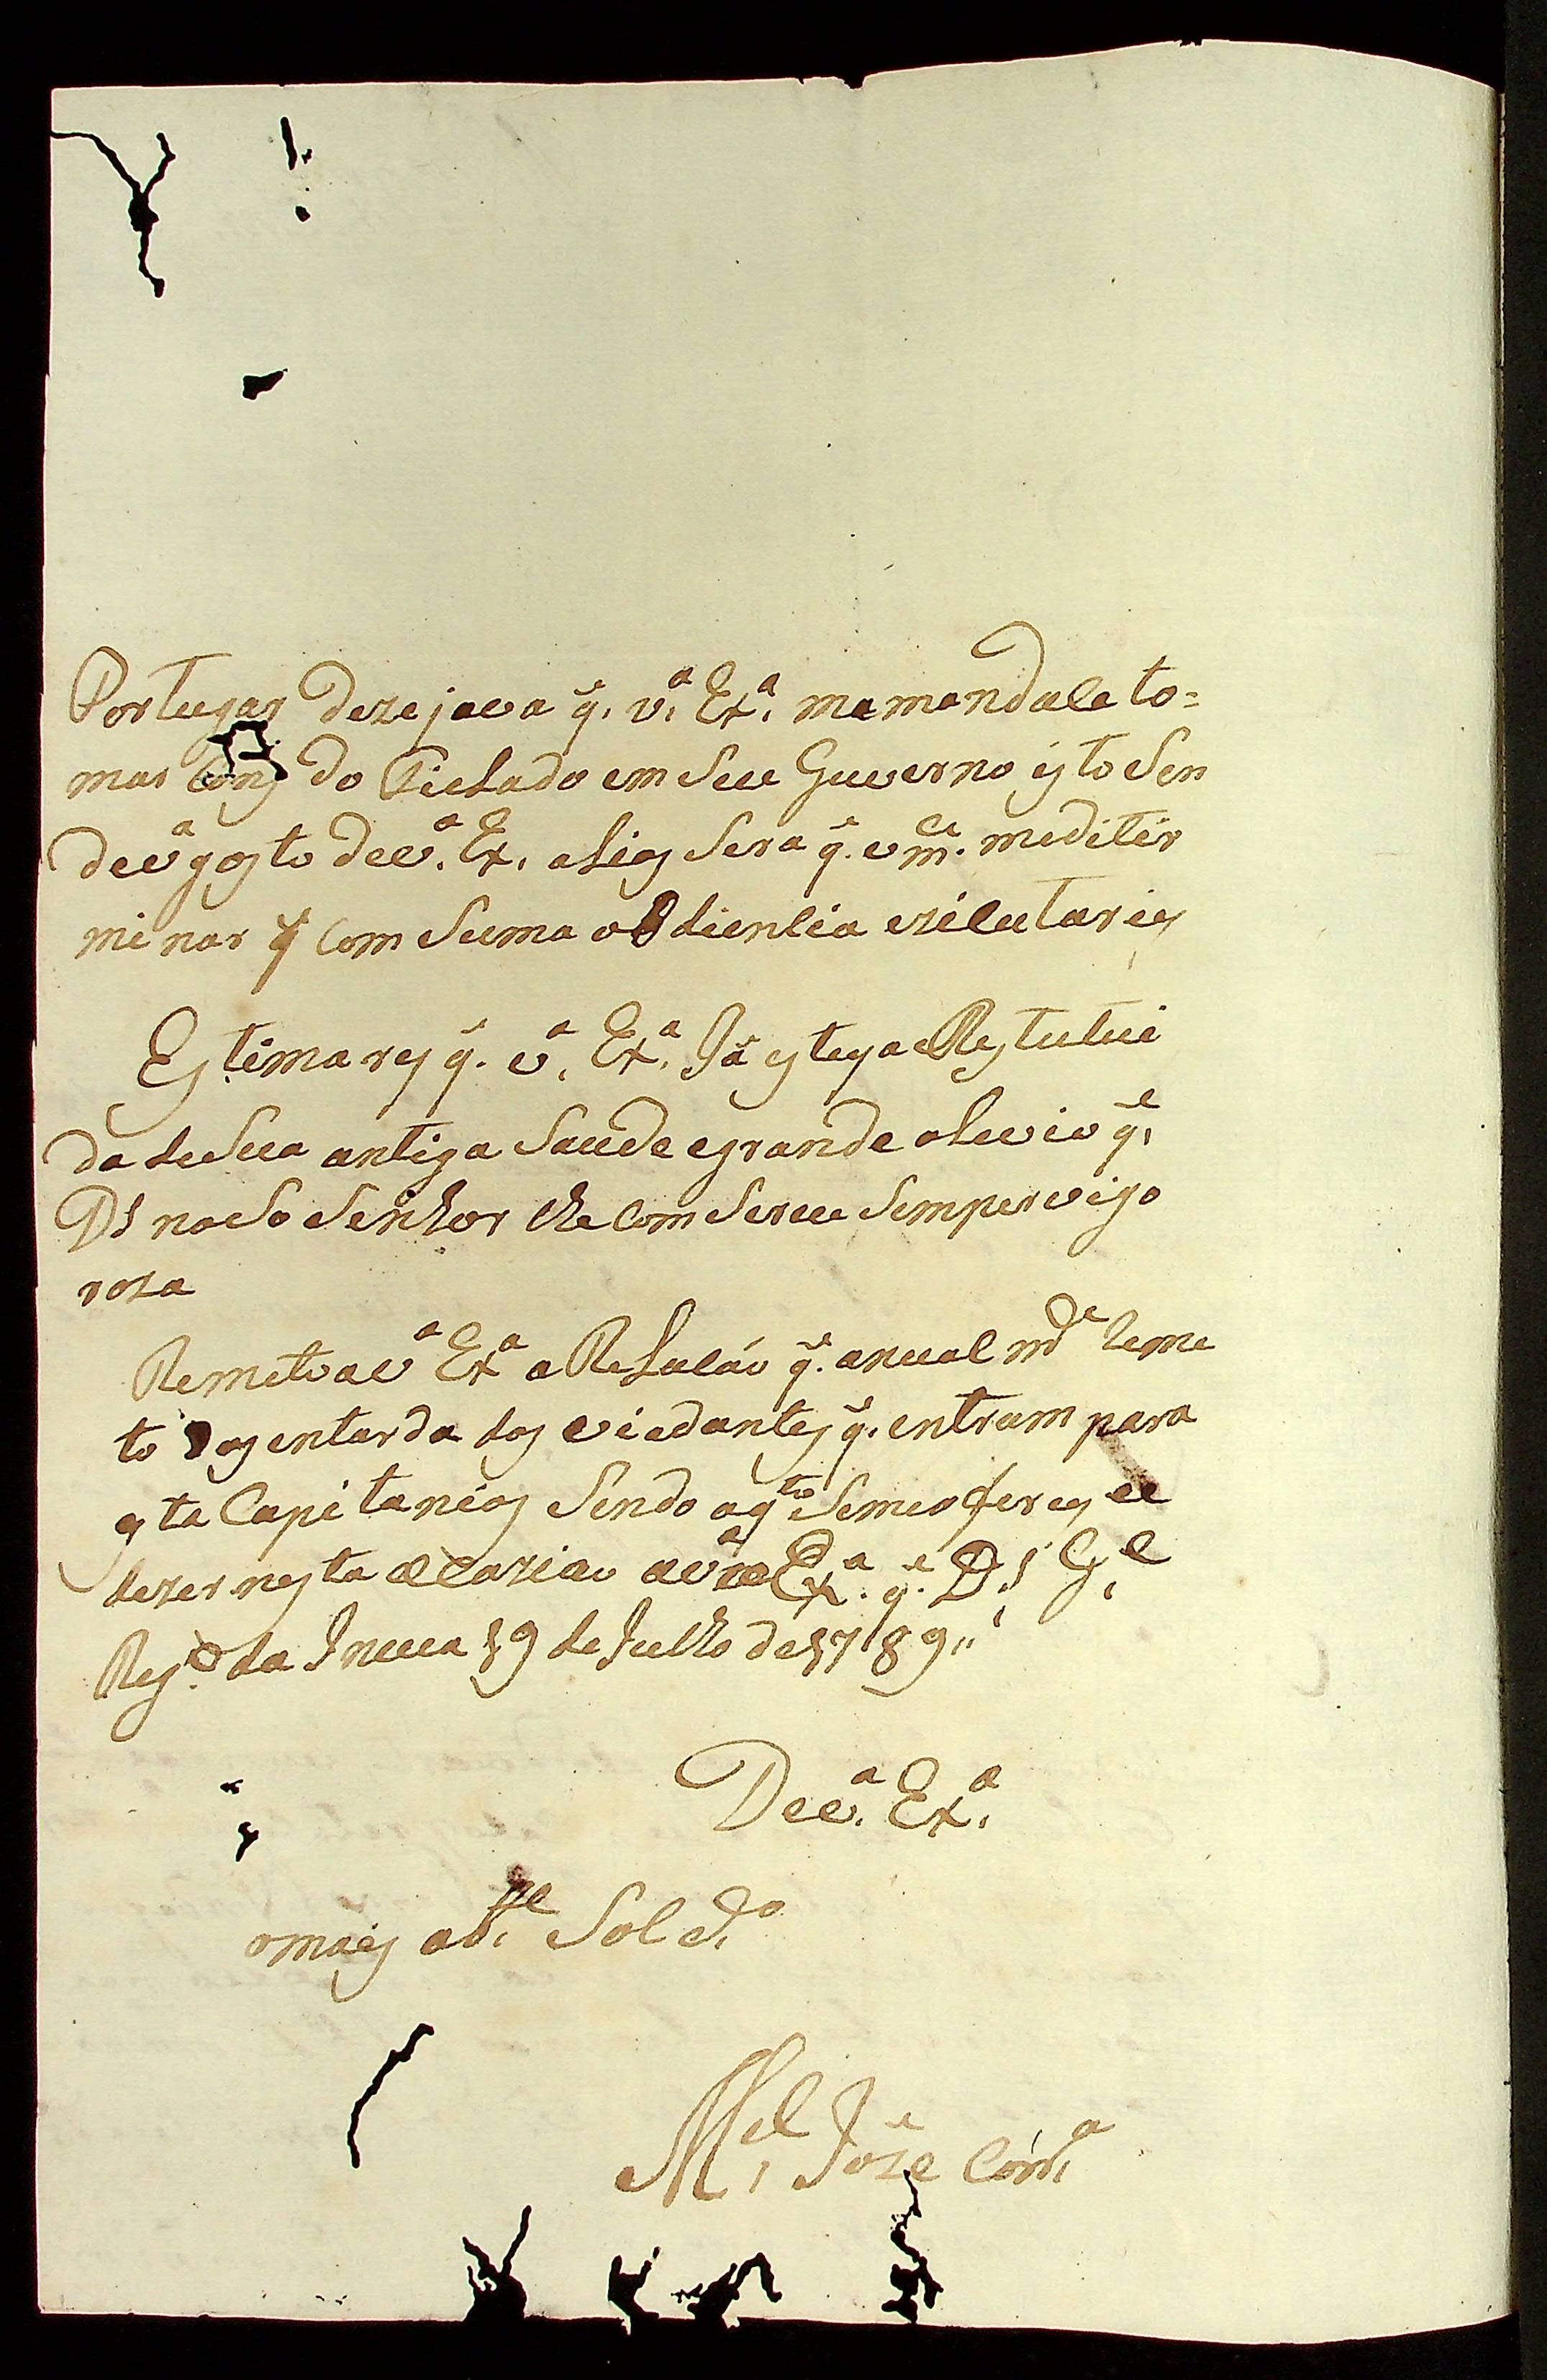 Portugas dezejava q.e v.a Ex.a me mandase to=
mar do em seu Guverno isto sen
do gosto de v.a Ex. alias sera q.e me ditir
minar q com suma obdiencia ezicutarei
Estimarei q.e v.a Ex.a Já esteja Restutui
da de sua antiga saude e grande alivio q.e
Ds noso Senhor lhe comserve semper vigo
roza
Remeto a v.a Ex.a a Relacáo q.e anual m.de reme
to das entarda dos viedantes q.e entram para
esta Capitanias sendo
dezer nesta ocaziao a v.a Ex.a q.e D.s G.e
Reg.o da 19 de Julho de 1789
De v.a Ex.a
o mais ob.de Sold.o
M.el Joze